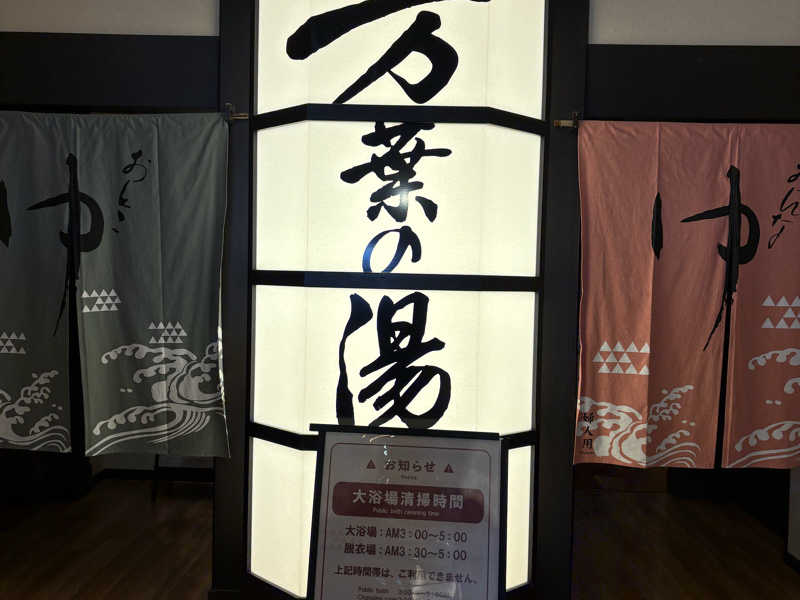 万葉の湯
ゆ
おとこ
ゆ
おんな
婦人用
お知らせ
大浴場清掃時間
Public bath cleaning time
大浴場：AM3：00～5：00
脱衣場：AM3：30～5：00
上記時間帯は、ご利用できません。
Public bath